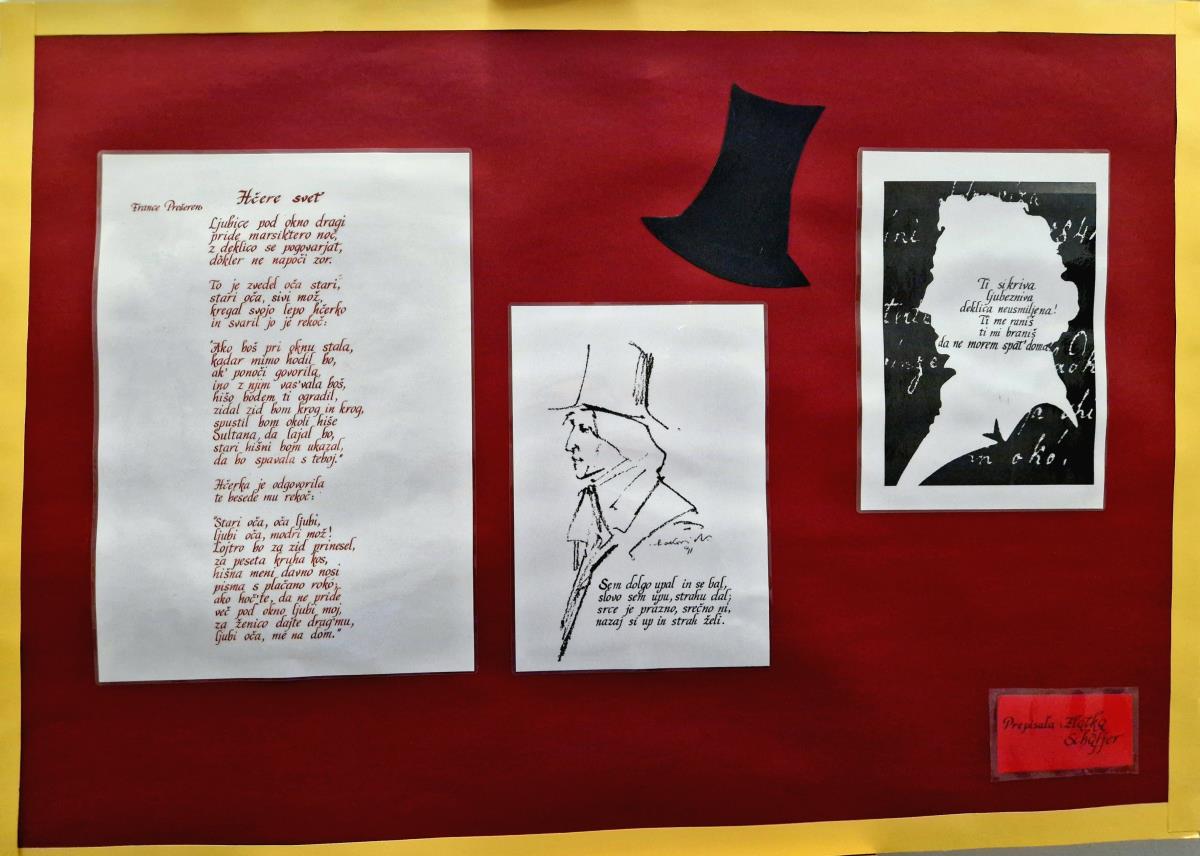 Hčere svet
France Prešeren
Ljubice pod okno dragi
pride marsiktero noč,
z deklico se pogovarjat,
dòkler ne napoči zor.
To je zvedel oča stari,
stari oča, sivi mož,
kregal svojo lepo hčerko
in svaril jo je rekoč:
"Ako boš pri oknu stala,
kadar mimo hodil bo,
ak' ponoči govorila,
ino z njim vas'vala boš,
hišo bodem ti ogradil,
zidal zid bom krog in krog,
spustil bom okoli hiše
Sultana, da lajal bo,
stari hišni bom ukazal,
da bo spavala s teboj."
Hčerka je odgovorila
te besede mu rekoč:
"Stari oča, oča ljubi,
ljubi oča, modri mož!
Lojtro bo za zid prinesel,
za peseta kruha kos,
hišna meni davno nosi
pisma s plačano roko;
ako hoč'te, da ne pride
več pod okno ljubi moj,
za ženico dajte drag'mu,
ljubi oča, mé na dom."
Sem dolgo upal in se bal,
slovo sem upu, strahu dal;
srce je prazno, srečno ni,
nazaj si up in strah želi.
Ti si kriva
ljubezniva
deklica neusmiljena!
Ti me raniš
ti mi braniš
da ne morem spat' doma.
in oko,
Prepisala: Zlatka
Schaffer